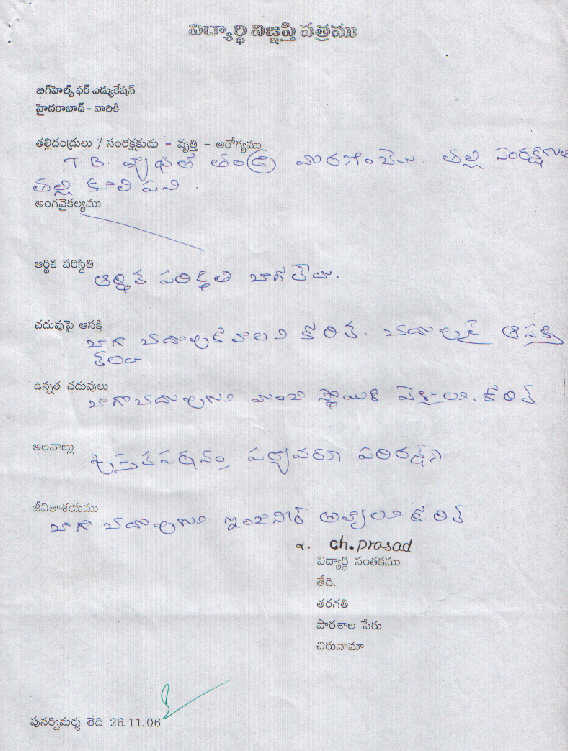 విద్యార్థి విజ్ఞప్తి పత్రము
బిగ్‌హెల్ప్ ఫర్ ఎడ్యుకేషన్
హైదరాబాద్ - వారికి
తల్లిదండ్రులు / సంరక్షకుడు - వృత్తి - ఆరోగ్యము
T.B. వ్యాధితో తండ్రి మరణించెను. తల్లి
తల్లి కూలి పని.
అంగవైకల్యము
ఆర్థిక పరిస్థితి
ఆర్థిక పరిస్థితి బాగాలేదు.
చదువుపై ఆసక్తి
బాగా చదువుకోవాలని కోరిక. ఆసక్తి
కలదు
ఉన్నత చదువులు
బాగా చదువుకుని మంచి స్థాయికి కోరిక
అలవాట్లు
పుస్తకపఠనం పర్యావరణ పరిరక్షణ
జీవితాశయము
బాగా చదువుకుని ఇంజనీర్ అవ్వాలని కోరిక
ch.prasad
విద్యార్థి సంతకము
తేది.
తరగతి
పాఠశాల పేరు
చిరునామా
పునర్విమర్శ తేది 26.11.06